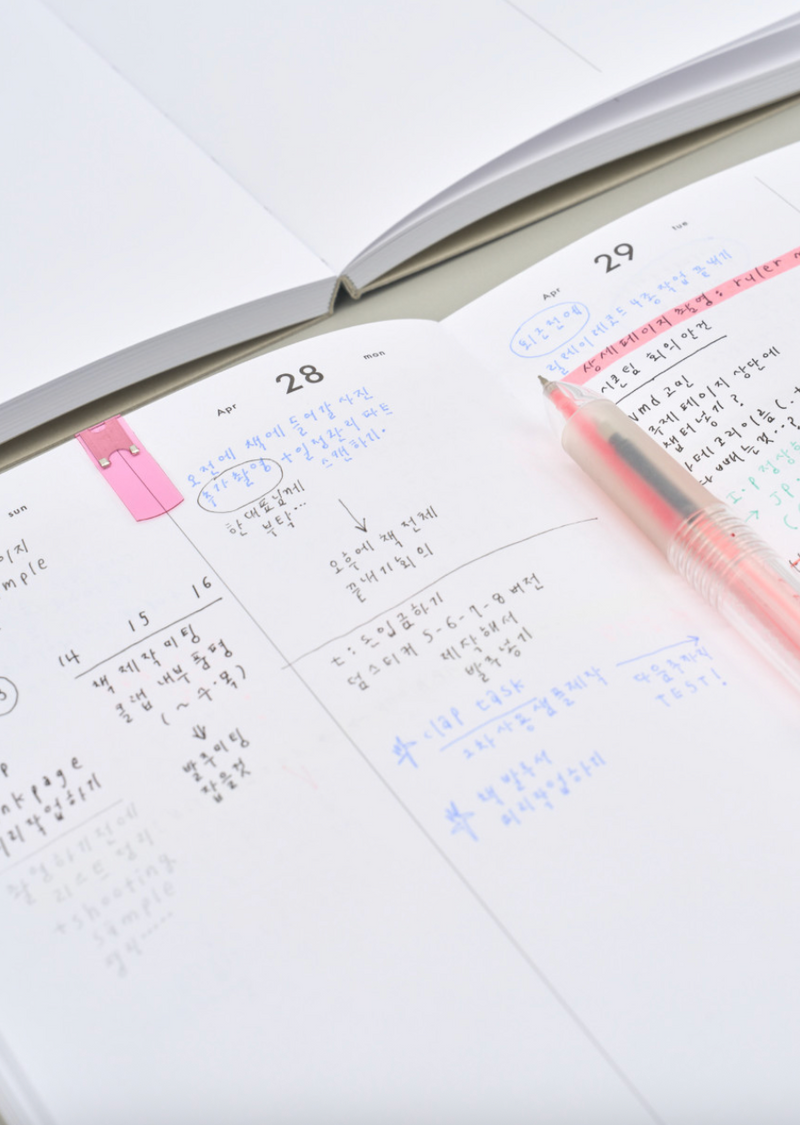 sun
이지
mple
14 15 16
책 제작 미팅
클랩 내부 품평
(~수·목)
발주미팅
잡을것
nkpage
미리작업하기
촬영하기전에
리스트 정리
+shooting
sample
Apr 28 mon
오전에 책에 들어갈 사진
추가촬영 + 일정관리 파트
스캔하기.
한대표님께
부탁...
오후에 책 전체
끝내기 회의
t: 돈입금하기
덤스티커 5-6-7-8 버전
제작해서
발주넣기
clap task
2차 사용 샘플제작
다음주까지
TEST!
책 발주서
미리작업하기
Apr 29 tue
외근전에
릴레이 레코드 4종작업 끝내기
상세페이지 촬영: ruler
시즌팀 회의안건
vmd 고민
주제 페이지 상단에
챕터넣기?
카테고리이름
빼는것..?